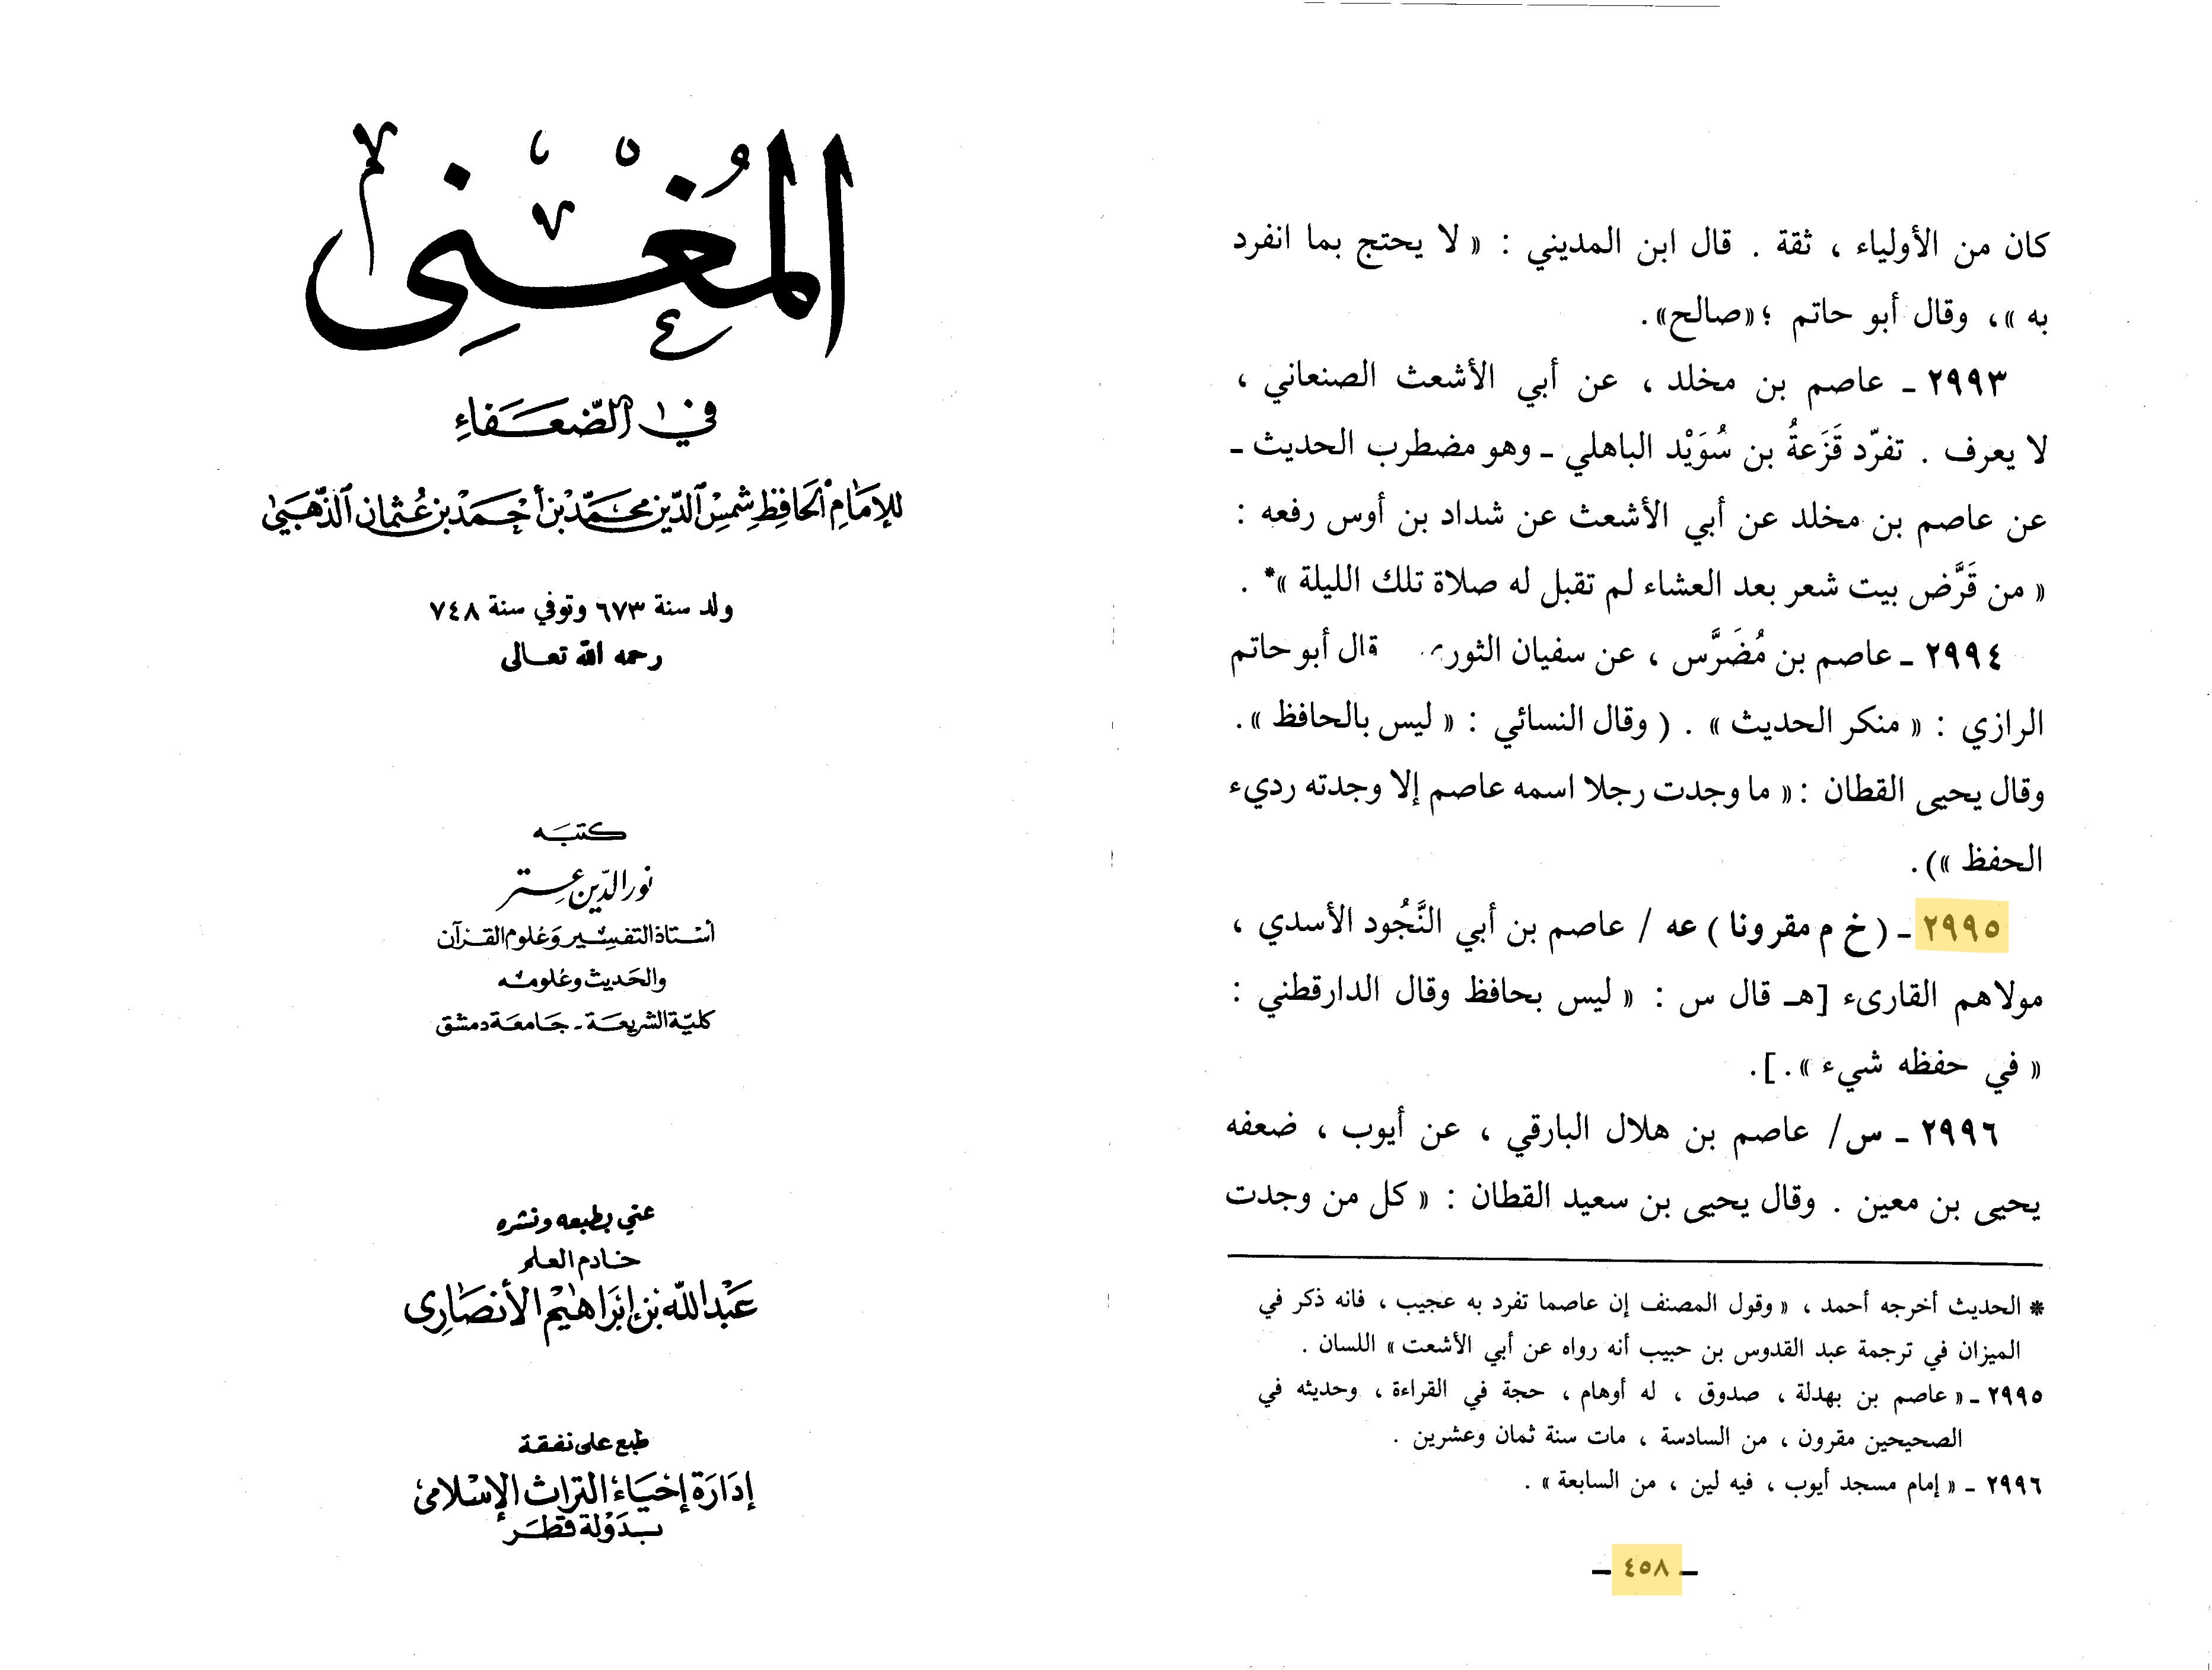 المُغْنِي
في الضّعَفَاءِ
للإمَامِ الحَافِظِ شمْسِ الدّين محَمّد بْن أحْمَد بْن عُثمان الذّهَبيّ
ولد سنة ٦٧٣ وتوفي سنة ٧٤٨
رحمه الله تعالى
كتبَه
نور الدّين عتر
أسْتاذ التفسِير وَعُلوم القرآن
والحَديث وعُلومه
كليّة الشريعَة - جَامعَة دمشق
عني بطبعه ونشره
خادم العلم
عَبْد الله بْن إبْرَاهيْم الأنصَاري
طبع على نفقة
إدَارَة إحْيَاء التراث الإسْلامي
بدَوْلة قطَر
كان من الأولياء ، ثقة . قال ابن المديني : « لا يحتج بما انفرد
به »، وقال أبو حاتم ؛«صالح».
٢٩٩٣ ـ عاصم بن مخلد ، عن أبي الأشعث الصنعاني ،
لا يعرف . تفرّد قَزَعةُ بن سُوَيْد الباهلي ـ وهو مضطرب الحديث ـ
عن عاصم بن مخلد عن أبي الأشعث عن شداد بن أوس رفعه :
« من قَرَّض بيت شعر بعد العشاء لم تقبل له صلاة تلك الليلة »* .
٢٩٩٤ ـ عاصم بن مُضَرَّس ، عن سفيان الثوري قال أبو حاتم
الرازي : « منكر الحديث » . ( وقال النسائي : « ليس بالحافظ ».
وقال يحيى القطان :« ما وجدت رجلا اسمه عاصم إلا وجدته رديء
الحفظ »).
٢٩٩٥ ـ ( خ م مقرونا ) عه / عاصم بن أبي النَّجُود الأسدي ،
مولاهم القارىء [هـ قال س : « ليس بحافظ وقال الدارقطني :
« في حفظه شيء ».].
٢٩٩٦ ـ س/ عاصم بن هلال البارقي ، عن أيوب ، ضعفه
يحيى بن معين . وقال يحيى بن سعيد القطان : « كل من وجدت
* الحديث أخرجه أحمد ، « وقول المصنف إن عاصما تفرد به عجيب ، فانه ذكر في
الميزان في ترجمة عبد القدوس بن حبيب أنه رواه عن أبي الأشعت » اللسان .
٢٩٩٥ ـ« عاصم بن بهدلة ، صدوق ، له أوهام ، حجة في القراءة ، وحديثه في
الصحيحين مقرون ، من السادسة ، مات سنة ثمان وعشرين .
٢٩٩٦ ـ « إمام مسجد أيوب ، فيه لين ، من السابعة » .
ـ ٤٥٨ ـ